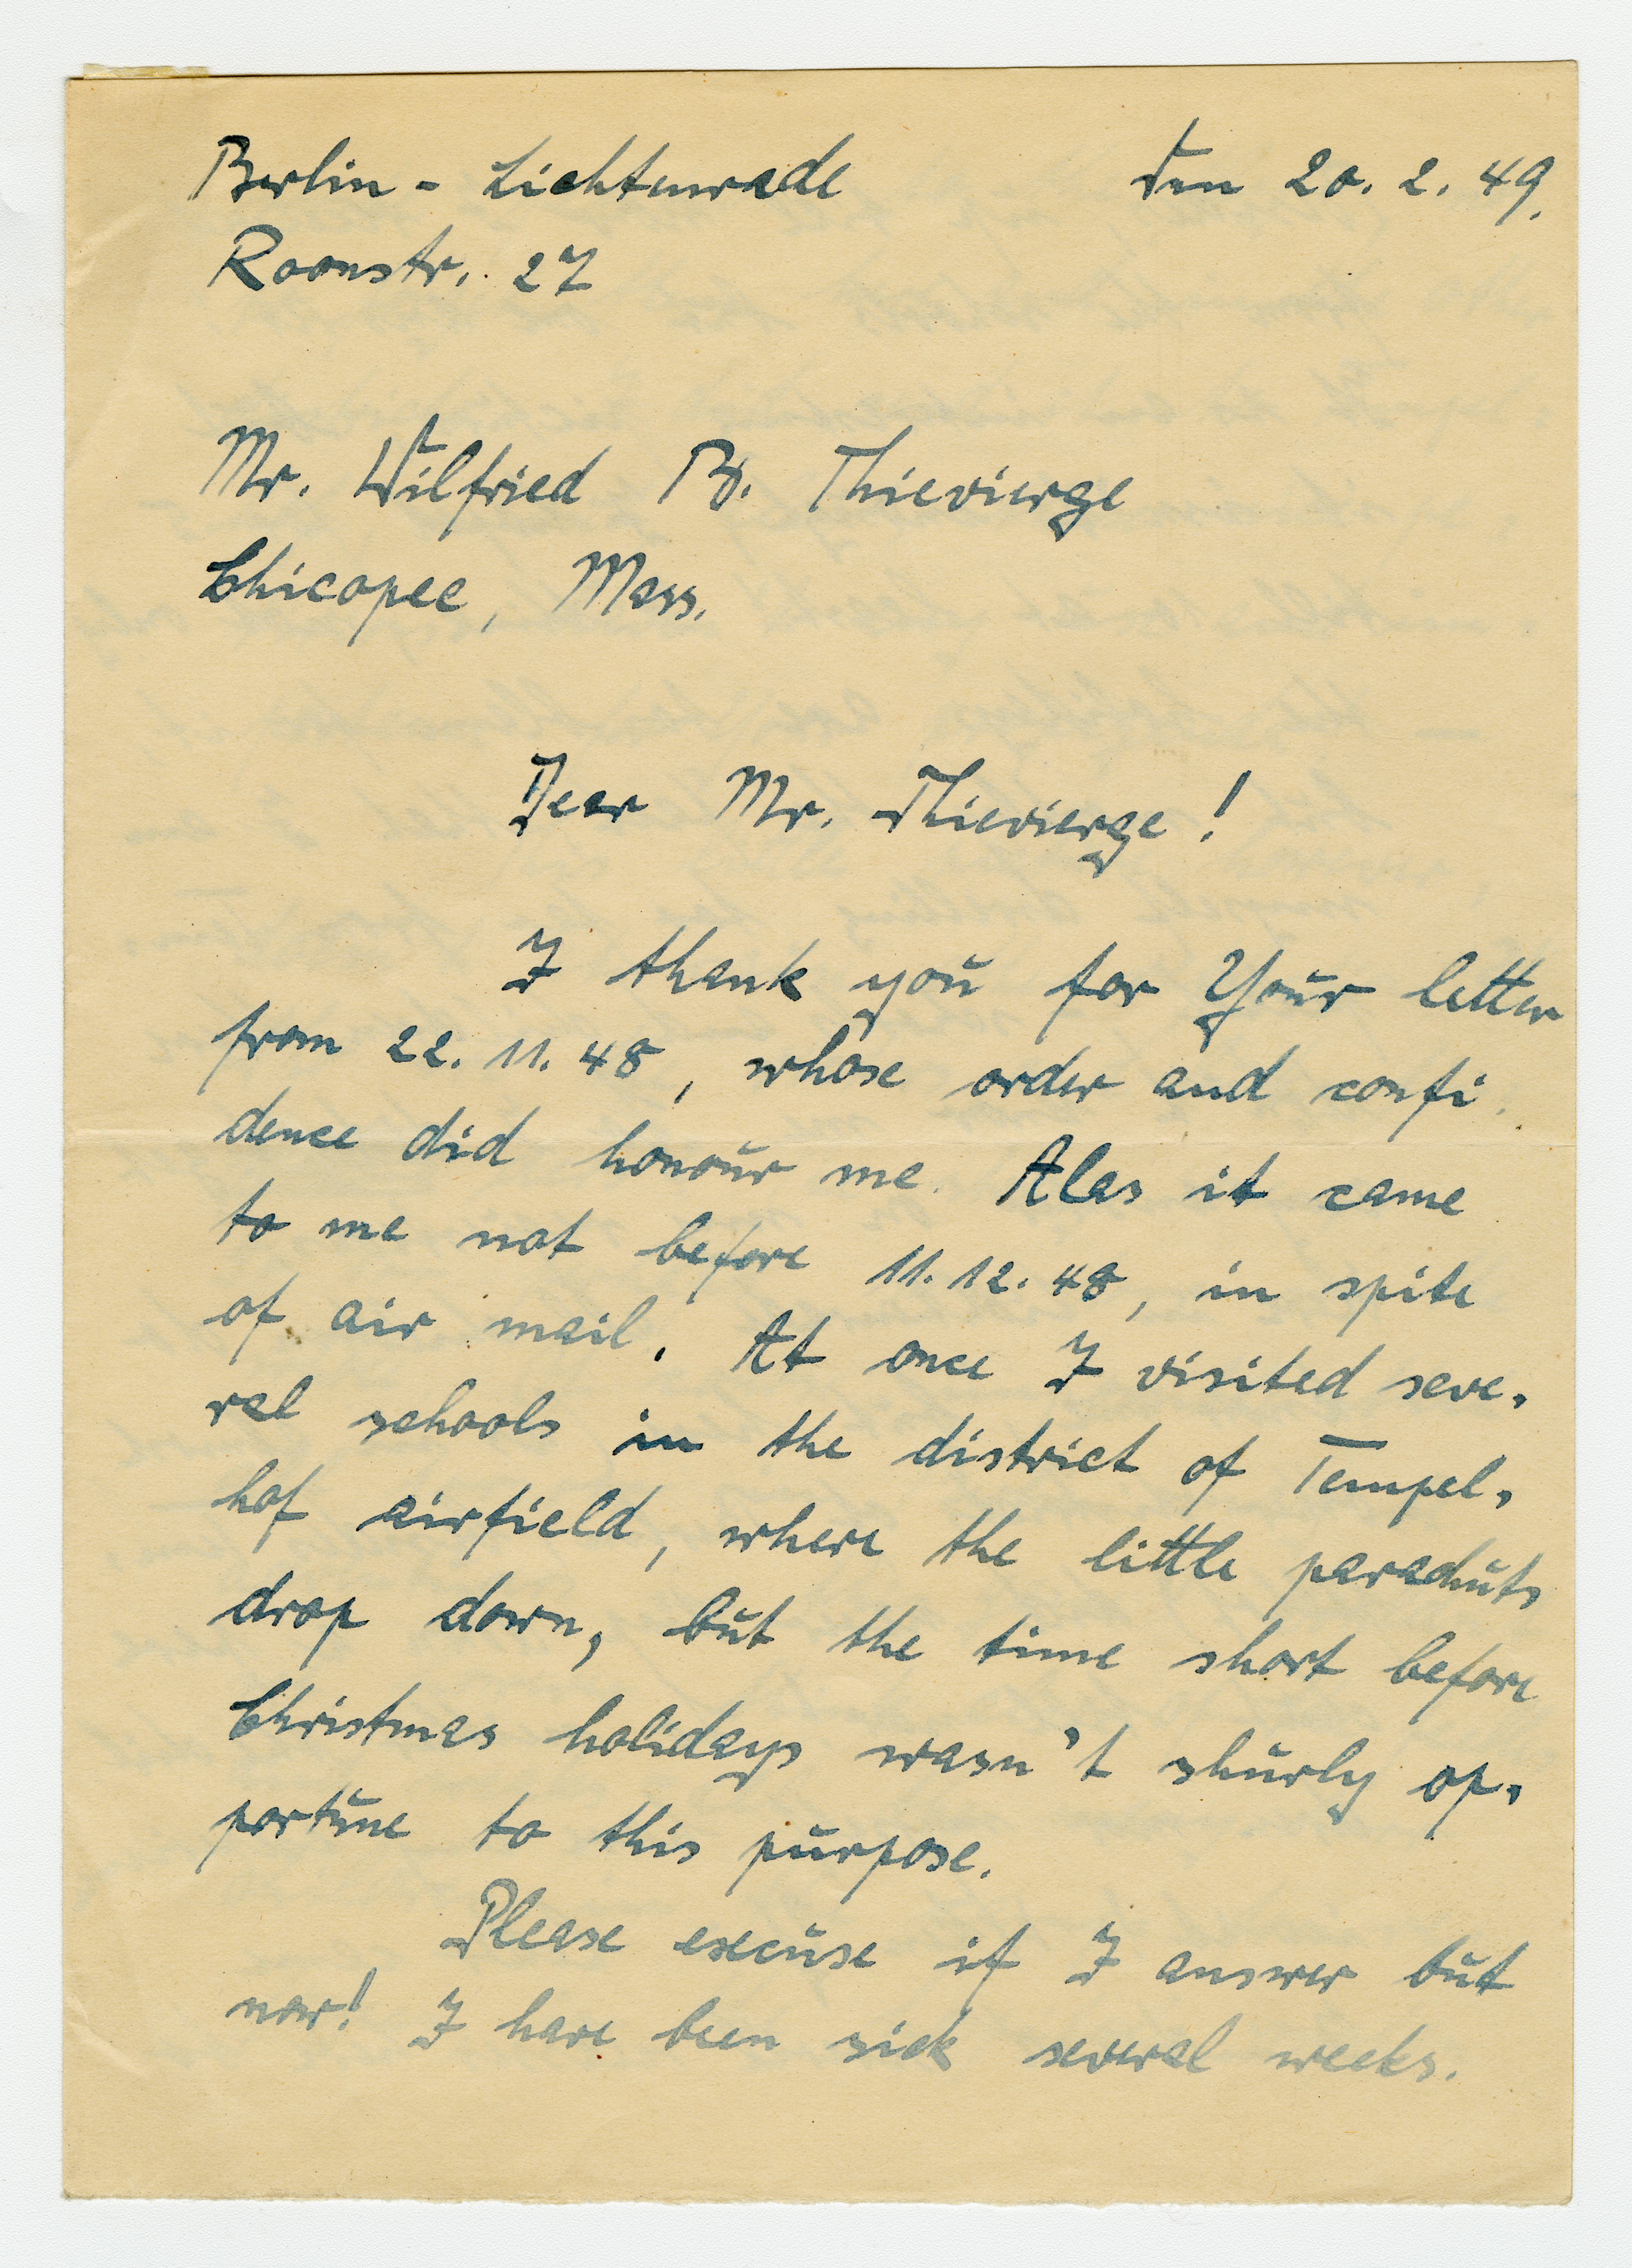 Berlin - Lichtenrade den 20. 2. 49.
Roonstr. 27
Mr. Wilfried B. Thievierge
Chicopee, Mass.
Dear Mr. Thievierge!
I thank you for Your letter
from 22. 11. 48, whose order and confi
dence did honour me. Alas it came
to me not before 11. 12. 48, in spite
of air mail. At once I visited seve-
ral schools in the district of Tempel-
hof airfield, where the little parachuts
drop down, but the time short before
Christmas holidays wasn't shurly op-
portune to this purpose.
Please excuse if I answer but
now! I have been sick several weeks.